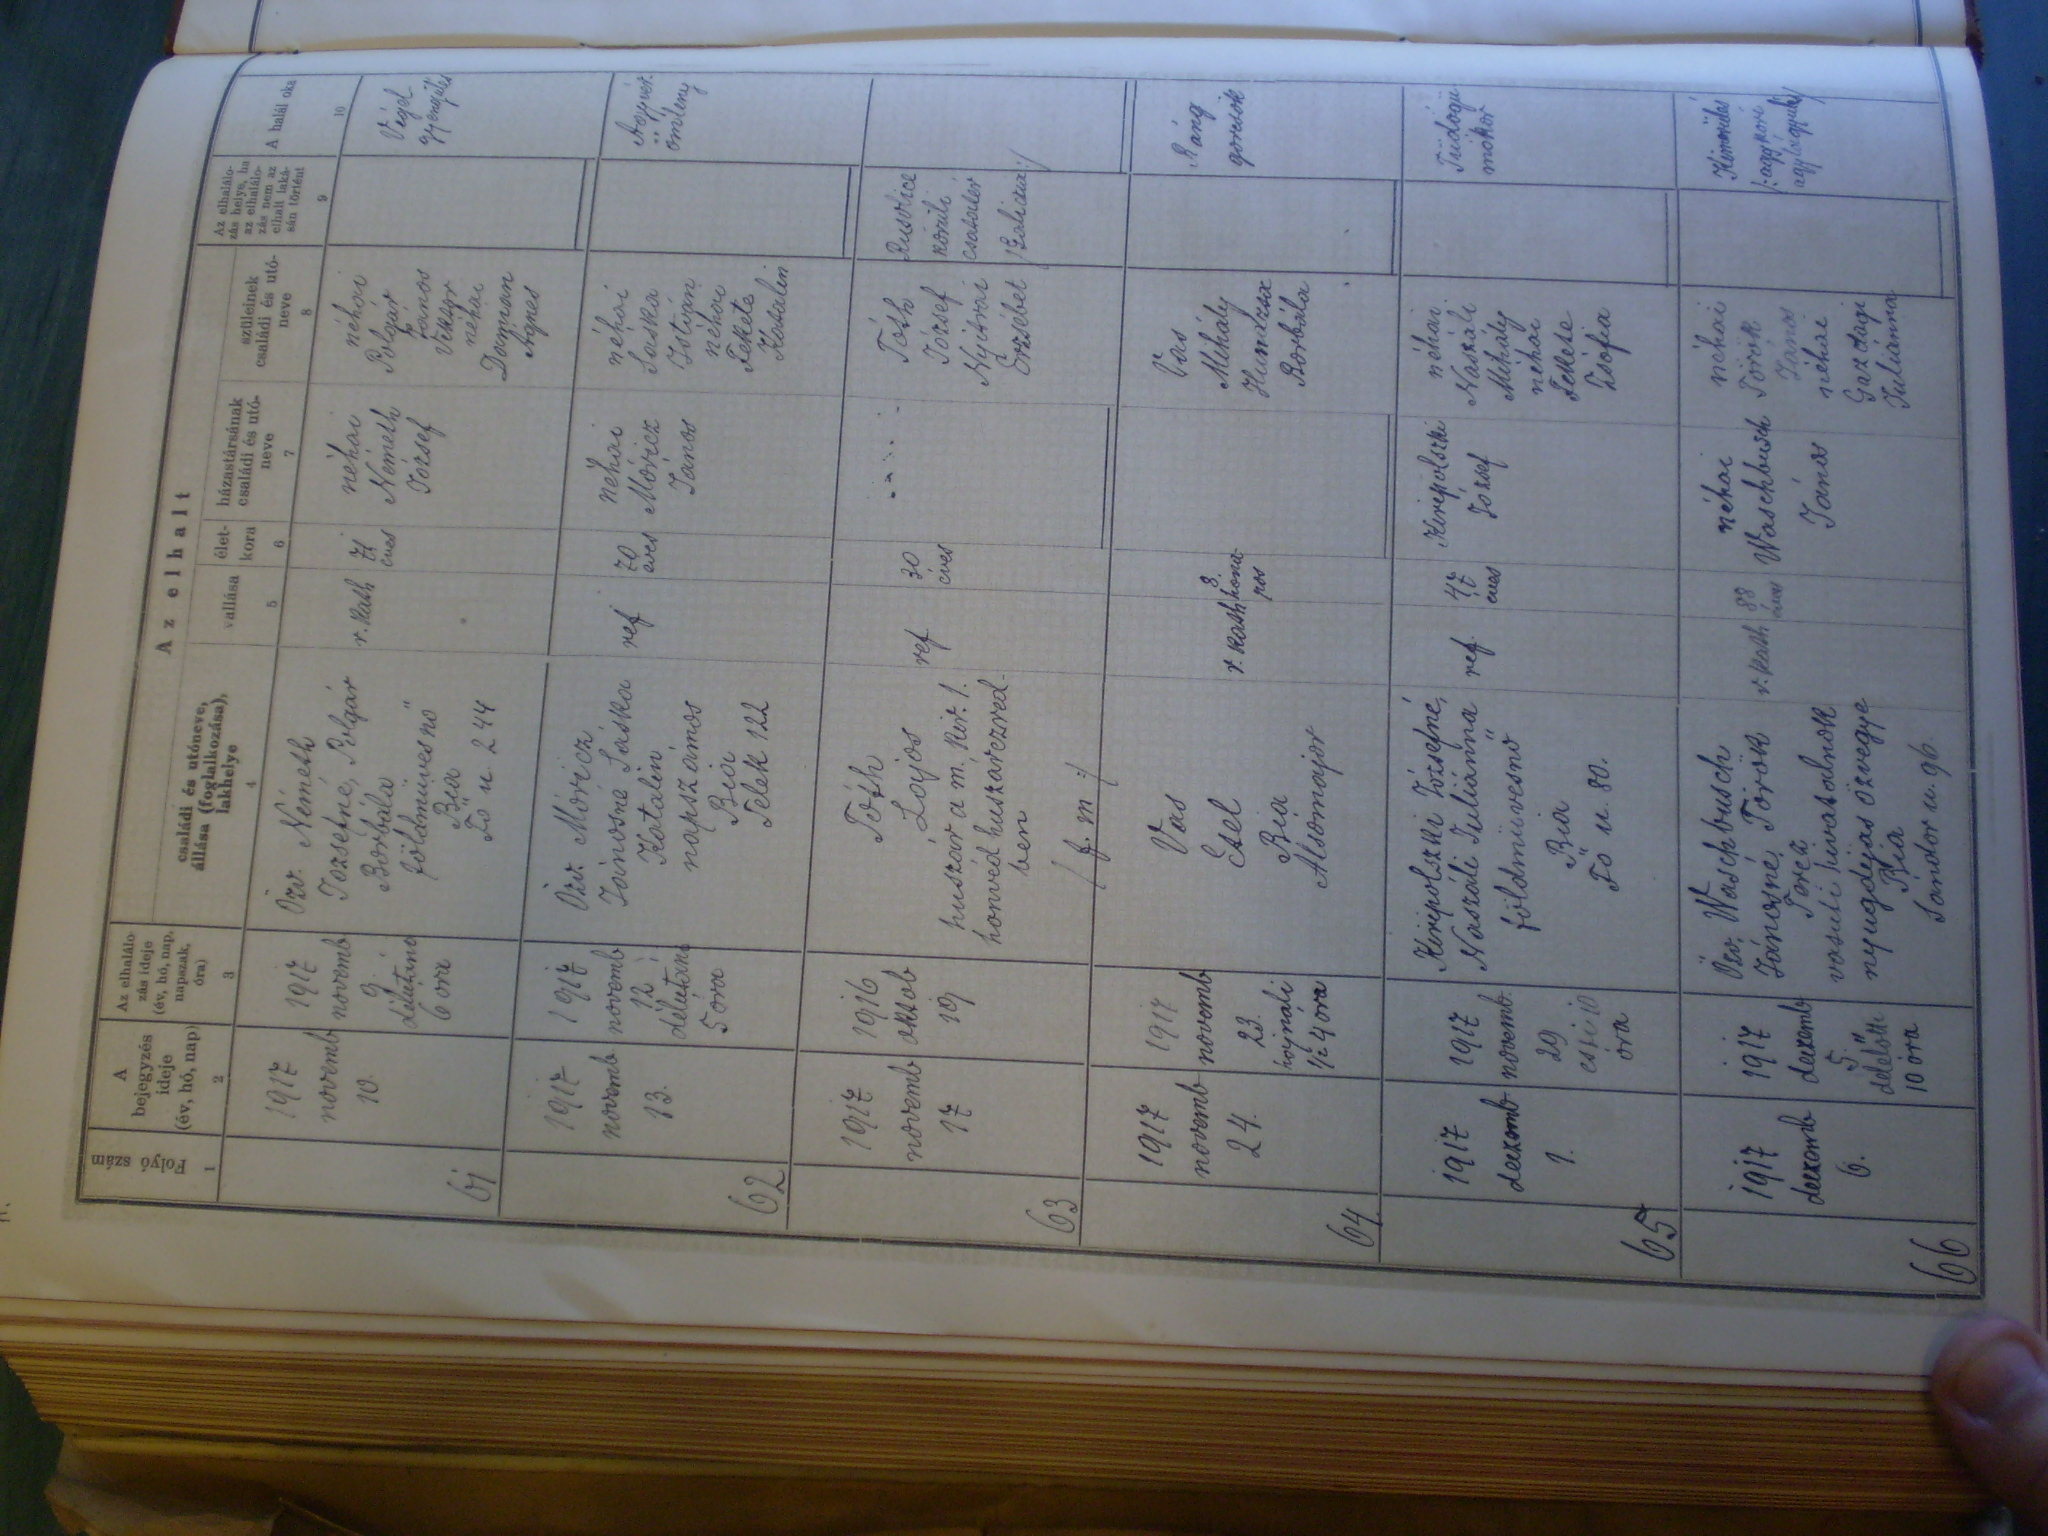 Az elhalt
Folyó szám
A
bejegyzés
ideje
(év, hó, nap)
Az elhalálo-
zás ideje
(év, hó, nap,
napszak,
óra)
családi és utóneve,
állása (foglalkozása),
lakhelye
vallása
élet-
kora
házastársának
családi és utó-
neve
szüleinek
családi és utó-
neve
Az elhalálo-
zás helye, ha
az elhalálo-
zás nem az
elhalt laká-
sán történt
A halál oka
1
2
3
4
5
6
7
8
9
10
61
1917
novemb
10.
1917
novemb
9
délutáni
6 óra
Özv. Németh
Józsefné, Polgár
Borbála
földmüvesnő
Bia
Fő u. 244
r. kath
71
éves
néhai
Németh
József
néhai
Polgár
János
néhai
Dagman
Ágnes
Végel
gyengülés
62
1917
novemb
13.
1917
novemb
12
délutáni
5 óra
Özv. Móricz
Jánosné Sáska
Katalin
napszámos
Bia
Telek 122
ref
70
éves
néhai
Móricz
János
néhai
Sáska
István
néhai
Fekete
Katalin
ömlény
63
1917
novemb
17
1916
oktob
19
Tóth
Lajos
huszár a m. kir. 1.
honvéd huszárezred-
ben
/f. m./
ref
30
éves
Tóth
József
Nyitrai
Erzsébet
körüli
csatatér
64
1917
novemb
24.
1917
novemb
23.
hajnali
1/2 4 óra
Vas
Etel
Bia
Alsómajor
r. kath
8
hóna-
pos
Vas
Mihály
Hundzsa
Borbála
Ráng
görcsök
65
1917
deczemb
1.
1917
novemb
29
esti 10
óra
Kirepolszki Józsefné,
Naszáli Juliánna
földmüvesnő
Bia
Fő u. 80.
ref.
47
éves
Kirepolszki
József
néhai
Naszáli
Mihály
néhai
Fekese
Zsófia
Tüdőgü-
mőkór
66
1917
deczemb
6.
1917
deczemb
5.
délelőtt
10 óra
Özv. Waschbusch
Jánosné, Török
Teréz
vasuti
nyugdíjas özvegye
Bia
Sándor u. 96.
r. kath
88
éves
néhai
Waschbusch
János
néhai
Török
János
néhai
Gazdagi
Juliánna